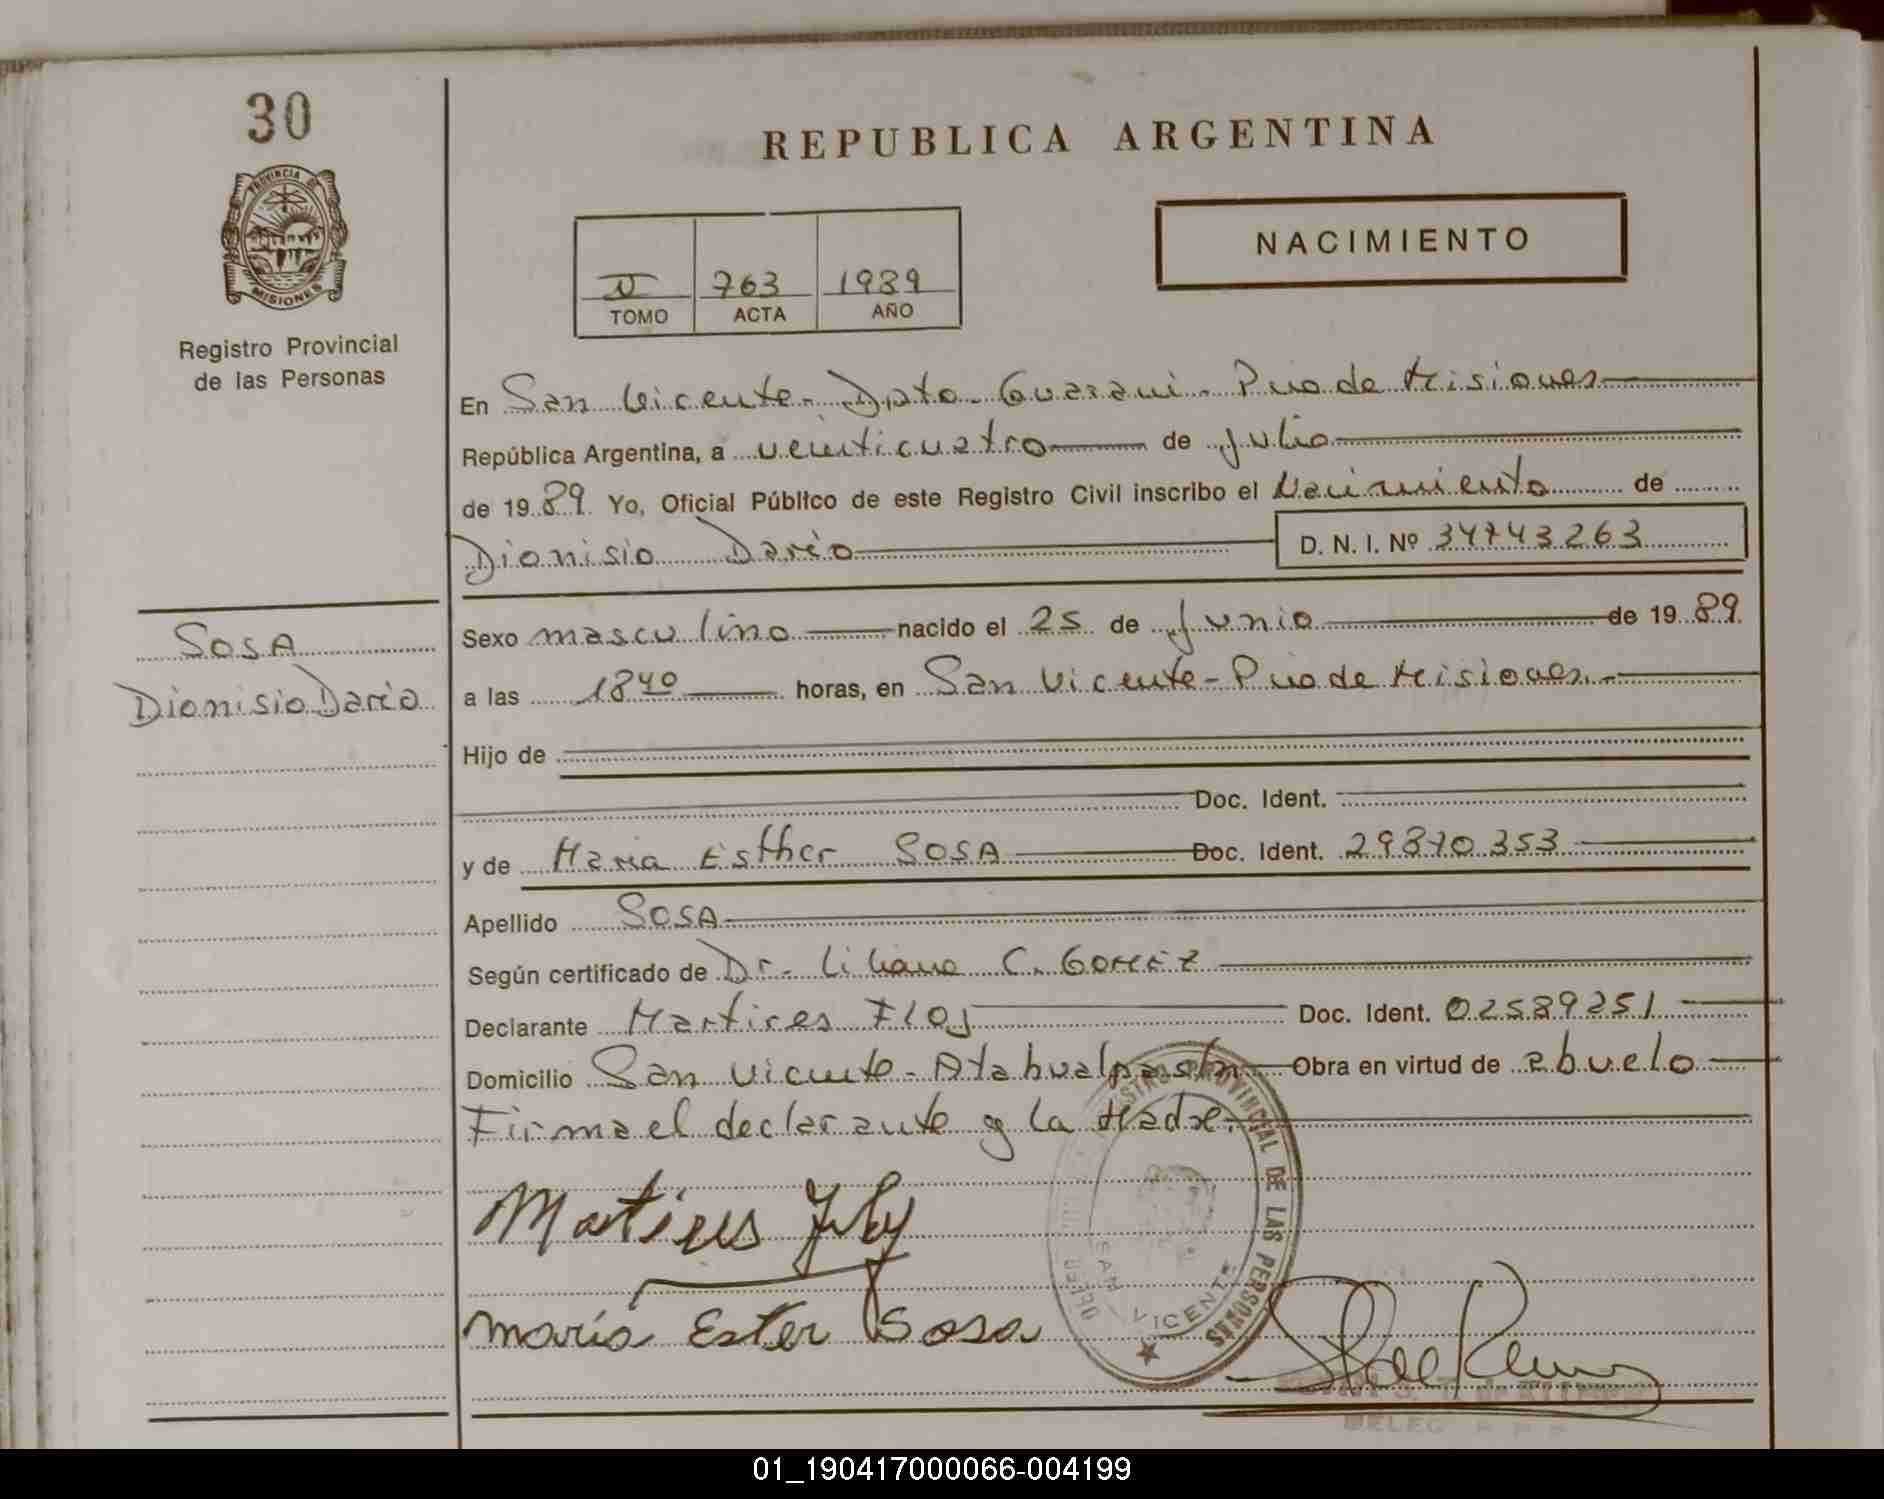 30
REPUBLICA ARGENTINA
PROVINCIA DE
MISIONES
Registro Provincial
de las Personas
NACIMIENTO
763 1989
TOMO ACTA AÑO
En San Vicente - Dpto. Guarani - Pcia de Misiones
República Argentina, a veinticuatro de Julio
de 1989. Yo, Oficial Público de este Registro Civil inscribo el Nacimiento de
Dionisio Dario D. N. I. Nº 34743263
SOSA
Dionisio Dario
Sexo masculino nacido el 25 de Junio de 1989.
a las 18 40 horas, en San Vicente - Pcia de Misiones.-
Hijo de
Doc. Ident.
y de Maria Esther SOSA Doc. Ident. 29870353
Apellido SOSA
Según certificado de Dr. Liliana C. Gomez
Declarante Martires Doc. Ident. 02589251
Domicilio San Vicente - Obra en virtud de abuelo
Firma el declarante y la Madre.
REGISTRO PROVINCIAL DE LAS PERSONAS
SAN VICENTE
Martires
maria Ester Sosa
01_190417000066-004199